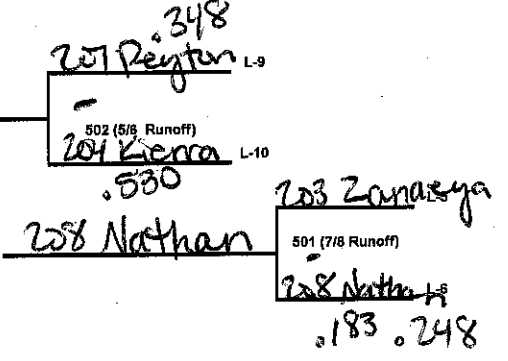 .348
201 Peyton L-9
502 (5/6 Runoff)
204 Kienra L-10
.530
203 Zanaeya
208 Nathan
501 (7/8 Runoff)
208 Nathan L-6
.183 .248